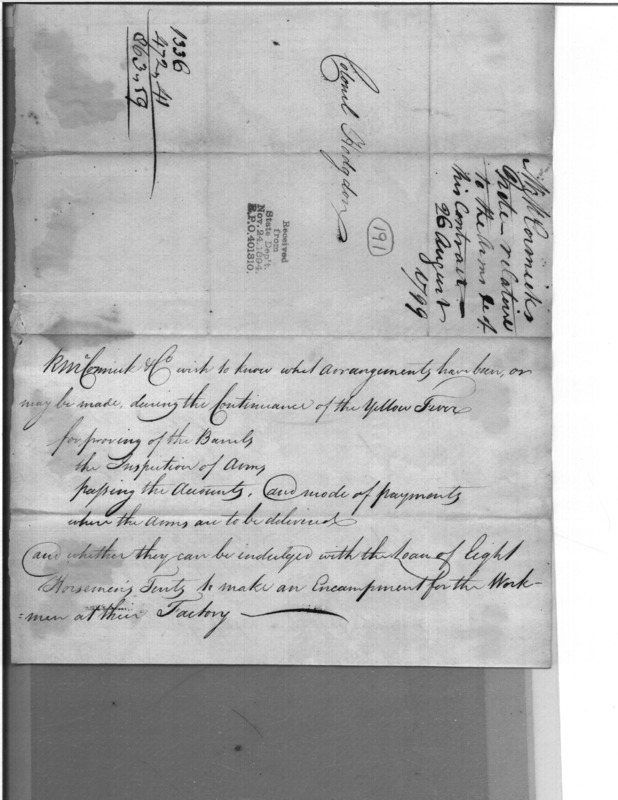 1336
472,41
863,59
Colonel Hodgdon
191
Received
from
State Dep't.
Nov. 24, 1894.
R.P.O. 401310.
McCormicks
Note - relative
to the Arms &c of
his Contract -
26 August
1799
R McCormick & Co wish to know what arrangements have been, or
may be made, during the Continuance of the Yellow Fever
for proving of the Barrels
the Inspection of Arms
passing the Accounts, and mode of payments
where the Arms are to be delivered
and whether they can be indulged with the Loan of Eight
Horsemen's Tents to make an Encampment for the Work-
=men at their Factory